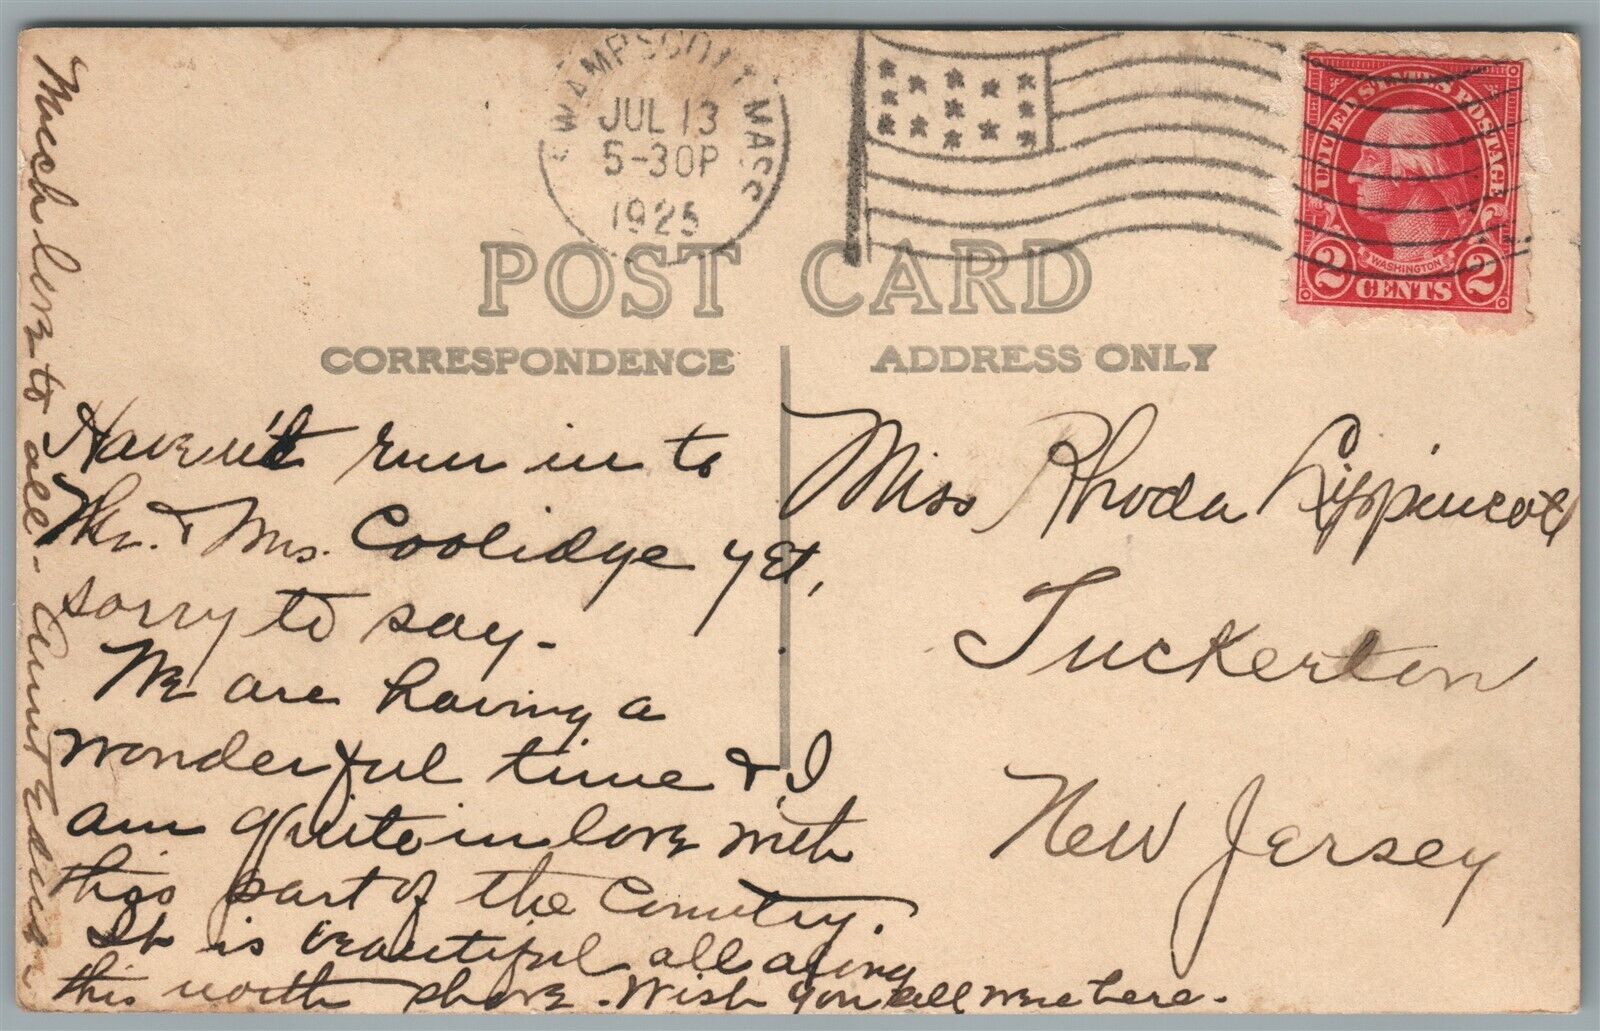 SWAMPSCOTT MASS
JUL 13
5-30P
1925
UNITED STATES POSTAGE
WASHINGTON
2 CENTS 2
POST CARD
CORRESPONDENCE
ADDRESS ONLY
Haven't run in to
Mr. & Mrs. Coolidge yet,
sorry to say-
We are having a
wonderful time & I
am quite in love with
this part of the Country.
It is beautiful all along
this north shore. Wish you all were here.
Much love to all- Aunt
Miss Rhoda Lippincott
Tuckerton
New Jersey